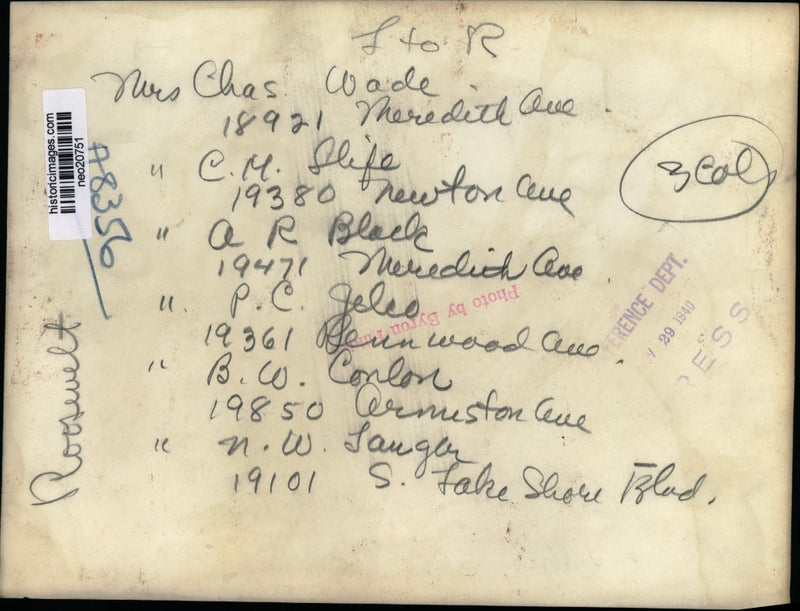 L to R
Mrs Chas. Wade
18921 Meredith Ave.
" C.H. Slife
19380 Newton Ave
" A R Black
19471 Meredith Ave.
" P.C. Jelco
19361 Pennwood Ave.
" B.W. Conlon
19850 Ormiston Ave
" N.W. Langer
19101 S. Lake Shore Blvd.
3 Col
Roosevelt
historicimages.com
neo20751
A8356
Photo by Byron
ERENCE DEPT.
29 1940
PRESS